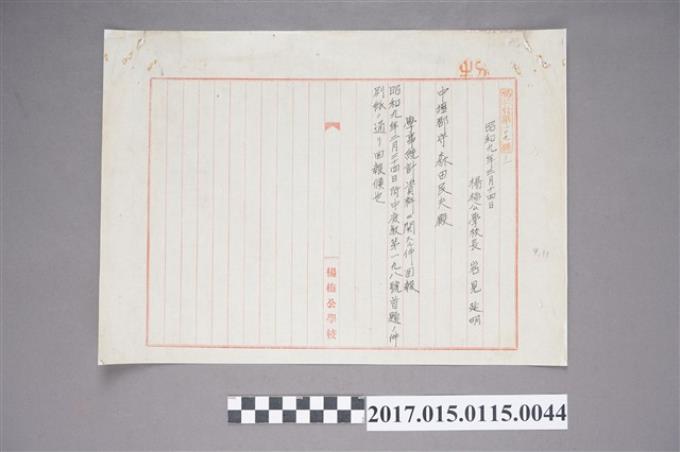 昭和九年三月十四日
楊梅公學校長 岩見延明
中壢郡守森田民夫殿
學事統計資料ニ關スル件回報
昭和九年二月二十四日附中庶教第一九八號首題ノ件
別紙ノ通リ回報候也
楊梅公學校
2017.015.0115.0044